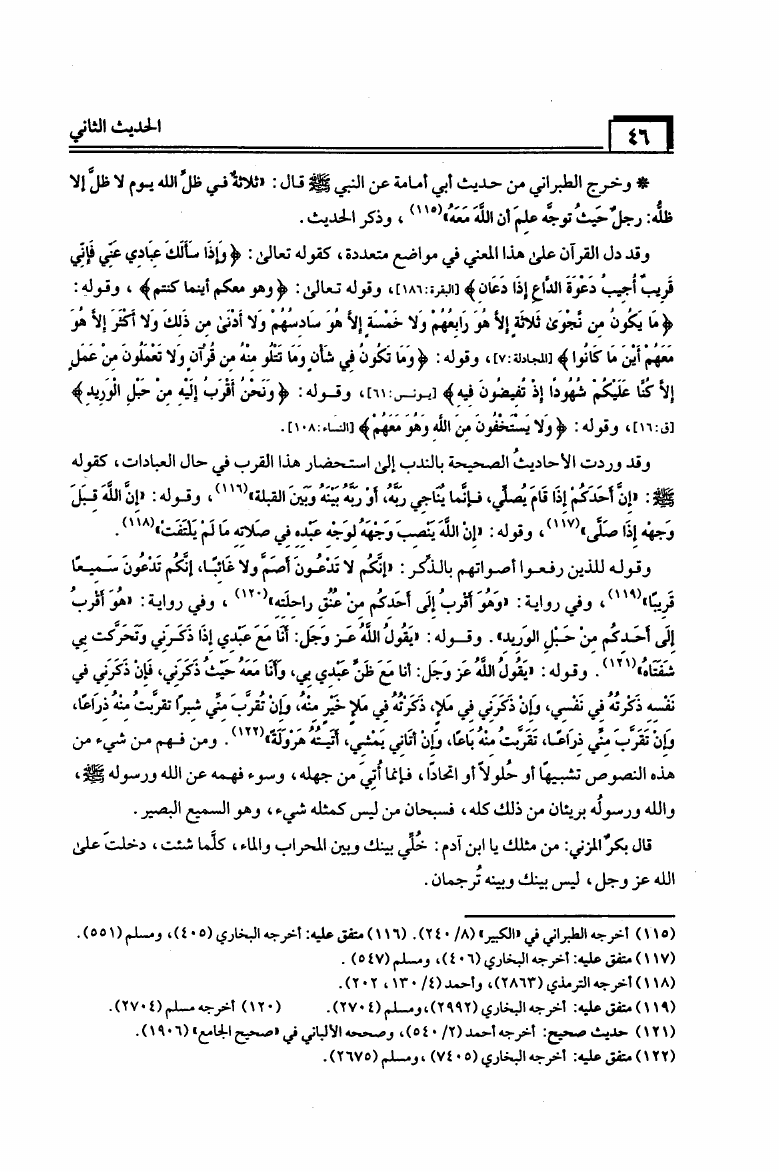 ٤٦
الحديث الثاني
* وخرج الطبراني من حديث أبي أمامة عن النبي ﷺ قال: «ثلاثةٌ في ظلِّ الله يوم لا ظلَّ إلا
ظلُّه: رجلٌ حَيثُ توجَّه علِمَ أن اللَّهَ مَعَهُ»(١١٥) ، وذكر الحديث.
وقد دل القرآن على هذا المعني في مواضع متعددة، كقوله تعالى: ﴿وَإِذَا سَأَلَكَ عِبَادِي عَنِّي فَإِنِّي
قَرِيبٌ أُجِيبُ دَعْوَةَ الدَّاعِ إِذَا دَعَانِ﴾ [البقرة:١٨٦]، وقوله تعالى: ﴿وهو معكم أينما كنتم﴾ ، وقوله:
﴿مَا يَكُونُ مِن نَّجْوَىٰ ثَلاثَةٍ إِلاَّ هُوَ رَابِعُهُمْ وَلا خَمْسَةٍ إِلاَّ هُوَ سَادِسُهُمْ وَلا أَدْنَىٰ مِن ذَلِكَ وَلا أَكْثَرَ إِلاَّ هُوَ
مَعَهُمْ أَيْنَ مَا كَانُوا﴾ [المجادلة:٧]، وقوله: ﴿وَمَا تَكُونُ فِي شَأْنٍ وَمَا تَتْلُو مِنْهُ مِن قُرْآنٍ وَلا تَعْمَلُونَ مِنْ عَمَلٍ
إِلاَّ كُنَّا عَلَيْكُمْ شُهُودًا إِذْ تُفِيضُونَ فِيهِ﴾ [يونس:٦١]، وقوله: ﴿وَنَحْنُ أَقْرَبُ إِلَيْهِ مِنْ حَبْلِ الْوَرِيدِ﴾
[ق:١٦]، وقوله: ﴿وَلا يَسْتَخْفُونَ مِنَ اللَّهِ وَهُوَ مَعَهُمْ﴾ [النساء:١٠٨].
وقد وردت الأحاديثُ الصحيحة بالندب إلى استحضار هذا القرب في حال العبادات، كقوله
ﷺ: «إِنَّ أَحَدَكُمْ إِذَا قَامَ يُصَلِّي، فَإِنَّمَا يُنَاجِي رَبَّهُ، أَوْ رَبُّهُ بَيْنَهُ وَبَيْنَ القبلة»(١١٦)، وقوله: «إِنَّ اللَّهَ قِبَلَ
وَجهِه إِذَا صَلَّى»(١١٧)، وقوله: «إِنْ اللَّهَ يَنْصِبُ وَجْهَهُ لِوَجْهِ عَبْدِه فِي صَلَاتِهِ مَا لَمْ يَلْتَفِتْ»(١١٨).
وقوله للذين رفعوا أصواتهم بالذِّكر: «إِنَّكُم لَا تَدْعُونَ أَصَمَّ ولا غائبًا، إِنَّكُم تَدْعُونَ سَمِيعًا
قَرِيبًا»(١١٩)، وفي رواية: «وَهُوَ أَقْرَبُ إِلَى أَحَدِكُم مِنْ عُنُقِ راحلته»(١٢٠) ، وفي رواية: «هُوَ أَقْرَبُ
إِلَى أَحَدِكُم مِنْ حَبْلِ الوَرِيدِ». وقوله: «يَقُولُ اللَّهُ عَزَ وَجَلَ: أنَا مَعَ عَبْدِي إِذَا ذَكَرَنِي وَتَحَرَّكَت بِي
شَفَتَاهُ»(١٢١). وقوله: «يَقُولُ اللَّهُ عَز وَجَل: أنا مَعَ ظَنِّ عَبْدِي بِي، وَأَنَا مَعَهُ حَيْثُ ذَكَرَنِي، فَإِنْ ذَكَرَنِي فِي
نَفْسِهِ ذَكَرْتُهُ فِي نَفْسِي، وَإِنْ ذَكَرَنِي فِي مَلَإٍ، ذَكَرْتُهُ فِي مَلإٍ خَيْرٍ مِنْهُ، وَإِنْ تَقَرَّبَ مِنِّي شِبرًا تقربتُ مِنْهُ ذِرَاعًا،
وَإِنْ تَقَرَّبَ مِنِّي ذِرَاعًا، تَقَرَّبتُ مِنْهُ بَاعًا، وَإِنْ أتَاني يَمْشِي، أَتَيتُهُ هَرْوَلَةً»(١٢٢). ومن فهم من شيء من
هذه النصوص تشبيهًا أو حُلولاً أو اتحادًا، فإنما أُتِيَ من جهله، وسوء فهمه عن الله ورسوله ﷺ،
والله ورسولُه بريئان من ذلك كله، فسبحان من ليس كمثله شيء، وهو السميع البصير.
قال بكرٌ المزني: من مثلك يا ابن آدم: خُلِّي بينك وبين المحراب والماء، كلَّما شئت، دخلتَ على
الله عز وجل، ليس بينك وبينه تُرجمان.
(١١٥) أخرجه الطبراني في «الكبير» (٨/ ٢٤٠). (١١٦) متفق عليه: أخرجه البخاري (٤٠٥)، ومسلم (٥٥١).
(١١٧) متفق عليه: أخرجه البخاري (٤٠٦)، ومسلم (٥٤٧) .
(١١٨) أخرجه الترمذي (٢٨٦٣)، وأحمد (٤/ ١٣٠، ٢٠٢).
(١١٩) متفق عليه: أخرجه البخاري (٢٩٩٢)،ومسلم (٢٧٠٤). (١٢٠) أخرجه مسلم (٢٧٠٤).
(١٢١) حديث صحيح: أخرجه أحمد (٢/ ٥٤٠)، وصححه الألباني في «صحيح الجامع» (١٩٠٦).
(١٢٢) متفق عليه: أخرجه البخاري (٧٤٠٥) ،ومسلم (٢٦٧٥).